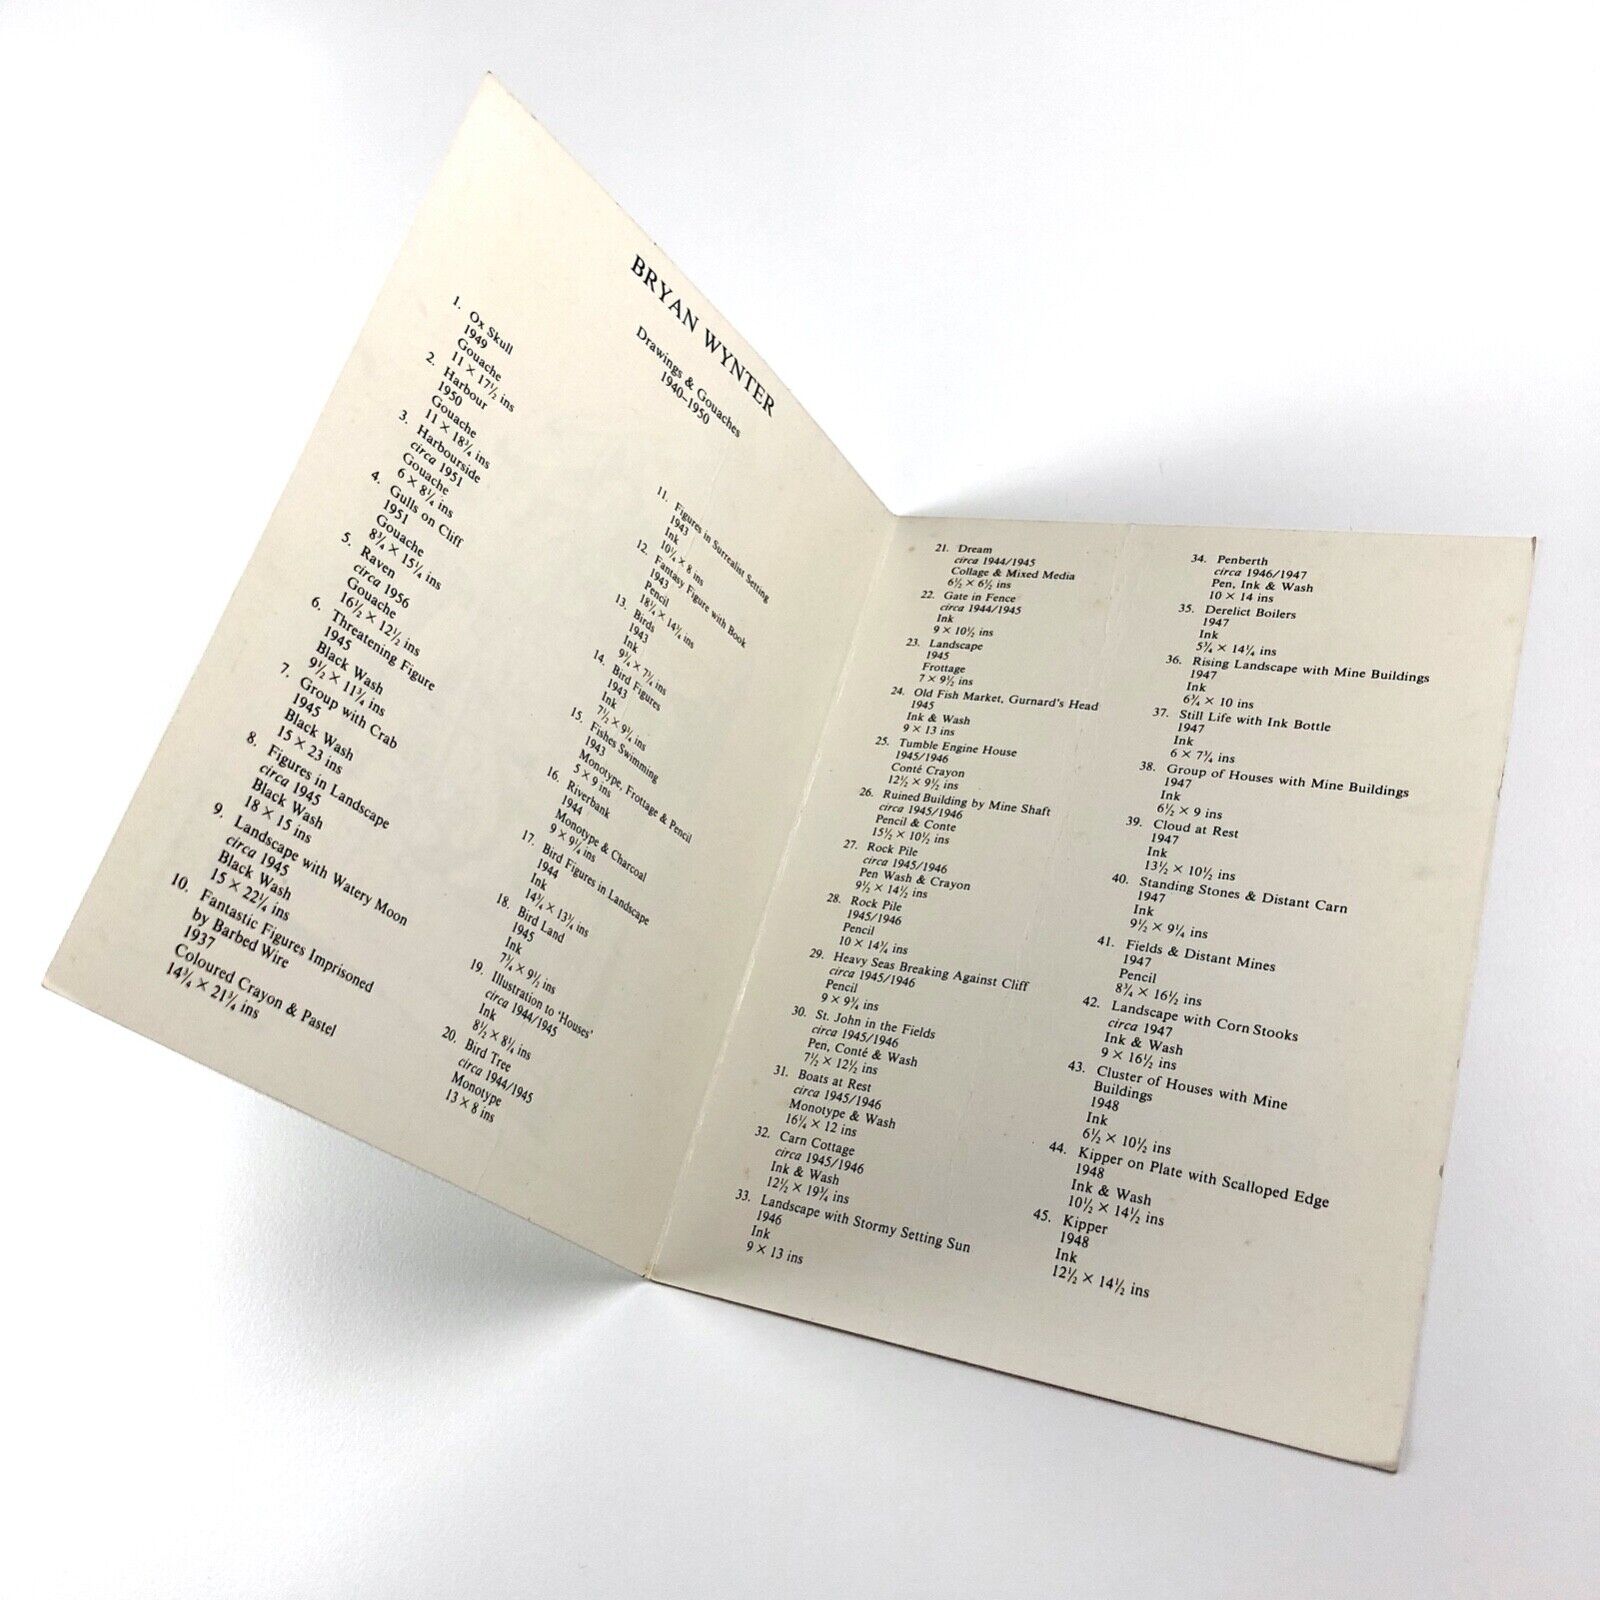 BRYAN WYNTER
Drawings & Gouaches
1940–1950
1. Ox Skull
1949
Gouache
11 × 17½ ins
2. Harbour
1950
Gouache
11 × 18¾ ins
3. Harbourside
circa 1951
Gouache
6 × 8¼ ins
4. Gulls on Cliff
1951
Gouache
8¾ × 15¼ ins
5. Raven
circa 1956
Gouache
16½ × 12½ ins
6. Threatening Figure
1945
Black Wash
9½ × 11¾ ins
7. Group with Crab
1945
Black Wash
15 × 23 ins
8. Figures in Landscape
circa 1945
Black Wash
18 × 15 ins
9. Landscape with Watery Moon
circa 1945
Black Wash
15 × 22¼ ins
10. Fantastic Figures Imprisoned
by Barbed Wire
1937
Coloured Crayon & Pastel
14¾ × 21¾ ins
11. Figures in Surrealist Setting
1943
Ink
10¼ × 8 ins
12. Fantasy Figure with Book
1943
Pencil
18¼ × 14¾ ins
13. Birds
1943
Ink
9¾ × 7¼ ins
14. Bird Figures
1943
Ink
7½ × 9¾ ins
15. Fishes Swimming
1943
Monotype, Frottage & Pencil
5 × 9 ins
16. Riverbank
1944
Monotype & Charcoal
9 × 9¼ ins
17. Bird Figures in Landscape
1944
Ink
14¾ × 13¾ ins
18. Bird Land
1945
Ink
7¾ × 9½ ins
19. Illustration to 'Houses'
circa 1944/1945
Ink
8½ × 8¼ ins
20. Bird Tree
circa 1944/1945
Monotype
13 × 8 ins
21. Dream
circa 1944/1945
Collage & Mixed Media
6½ × 6½ ins
22. Gate in Fence
circa 1944/1945
Ink
9 × 10½ ins
23. Landscape
1945
Frottage
7 × 9½ ins
24. Old Fish Market, Gurnard's Head
1945
Ink & Wash
9 × 13 ins
25. Tumble Engine House
1945/1946
Conté Crayon
12½ × 9½ ins
26. Ruined Building by Mine Shaft
circa 1945/1946
Pencil & Conte
15½ × 10½ ins
27. Rock Pile
circa 1945/1946
Pen Wash & Crayon
9½ × 14½ ins
28. Rock Pile
1945/1946
Pencil
10 × 14¾ ins
29. Heavy Seas Breaking Against Cliff
circa 1945/1946
Pencil
9 × 9¾ ins
30. St. John in the Fields
circa 1945/1946
Pen, Conté & Wash
7½ × 12½ ins
31. Boats at Rest
circa 1945/1946
Monotype & Wash
16¼ × 12 ins
32. Carn Cottage
circa 1945/1946
Ink & Wash
12½ × 19¾ ins
33. Landscape with Stormy Setting Sun
1946
Ink
9 × 13 ins
34. Penberth
circa 1946/1947
Pen, Ink & Wash
10 × 14 ins
35. Derelict Boilers
1947
Ink
5¾ × 14¼ ins
36. Rising Landscape with Mine Buildings
1947
Ink
6¾ × 10 ins
37. Still Life with Ink Bottle
1947
Ink
6 × 7¾ ins
38. Group of Houses with Mine Buildings
1947
Ink
6½ × 9 ins
39. Cloud at Rest
1947
Ink
13½ × 10½ ins
40. Standing Stones & Distant Carn
1947
Ink
9½ × 9¼ ins
41. Fields & Distant Mines
1947
Pencil
8¾ × 16½ ins
42. Landscape with Corn Stooks
circa 1947
Ink & Wash
9 × 16½ ins
43. Cluster of Houses with Mine
Buildings
1948
Ink
6½ × 10½ ins
44. Kipper on Plate with Scalloped Edge
1948
Ink & Wash
10½ × 14½ ins
45. Kipper
1948
Ink
12½ × 14½ ins